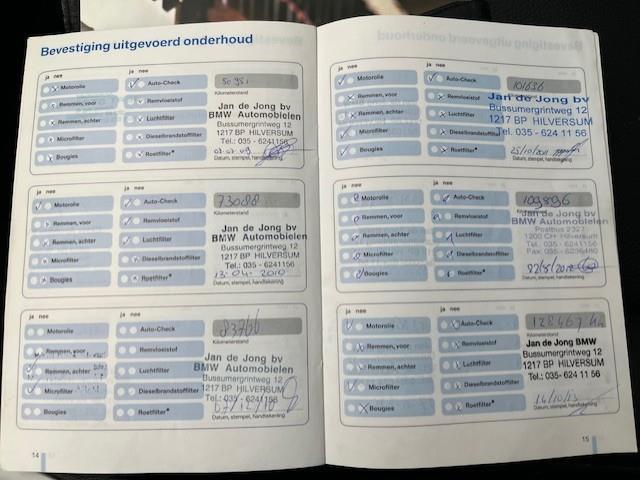 Bevestiging uitgevoerd onderhoud
ja nee ja nee
Motorolie Auto-Check
Remmen, voor Remvloeistof Kilometerstand
Remmen, achter Luchtfilter Jan de Jong bv
Microfilter Dieselbrandstoffilter BMW Automobielen
Bougies Roetfilter* Bussumergrintweg 12
1217 BP HILVERSUM
Tel.: 035 - 6241156
Datum, stempel, handtekening
ja nee ja nee
Motorolie Auto-Check 73088
Remmen, voor Remvloeistof Kilometerstand
Remmen, achter Luchtfilter Jan de Jong bv
Microfilter Dieselbrandstoffilter BMW Automobielen
Bougies Roetfilter* Bussumergrintweg 12
1217 BP HILVERSUM
Tel.: 035 - 6241156
13-04-2010
Datum, stempel, handtekening
ja nee ja nee
Motorolie Auto-Check 83766
Remmen, voor Remvloeistof Kilometerstand
Remmen, achter Luchtfilter Jan de Jong bv
Microfilter Dieselbrandstoffilter BMW Automobielen
Bougies Roetfilter* Bussumergrintweg 12
1217 BP HILVERSUM
Tel.: 035 - 6241156
07/12/10
Datum, stempel, handtekening
14
ja nee ja nee
Motorolie Auto-Check 101636
Remmen, voor Remvloeistof Jan de Jong bv
Remmen, achter Luchtfilter Bussumergrintweg 12
Microfilter Dieselbrandstoffilter 1217 BP HILVERSUM
Bougies Roetfilter* Tel. 035 - 624 11 56
25/10/2011
Datum, stempel, handtekening
ja nee ja nee
Motorolie Auto-Check 109896
Remmen, voor Remvloeistof Jan de Jong bv
Remmen, achter Luchtfilter BMW Automobielen
Microfilter Dieselbrandstoffilter Postbus 2327
Bougies Roetfilter* 1200 CH Hilversum
Tel. 035 - 6241156
Fax. 035 -
Datum, stempel, handtekening
ja nee ja nee
Motorolie Auto-Check 128467 km
Remmen, voor Remvloeistof Kilometerstand
Remmen, achter Luchtfilter Jan de Jong BMW
Microfilter Dieselbrandstoffilter Bussumergrintweg 12
Bougies Roetfilter* 1217 BP HILVERSUM
Tel.: 035- 624 11 56
14/10/13
Datum, stempel, handtekening
15